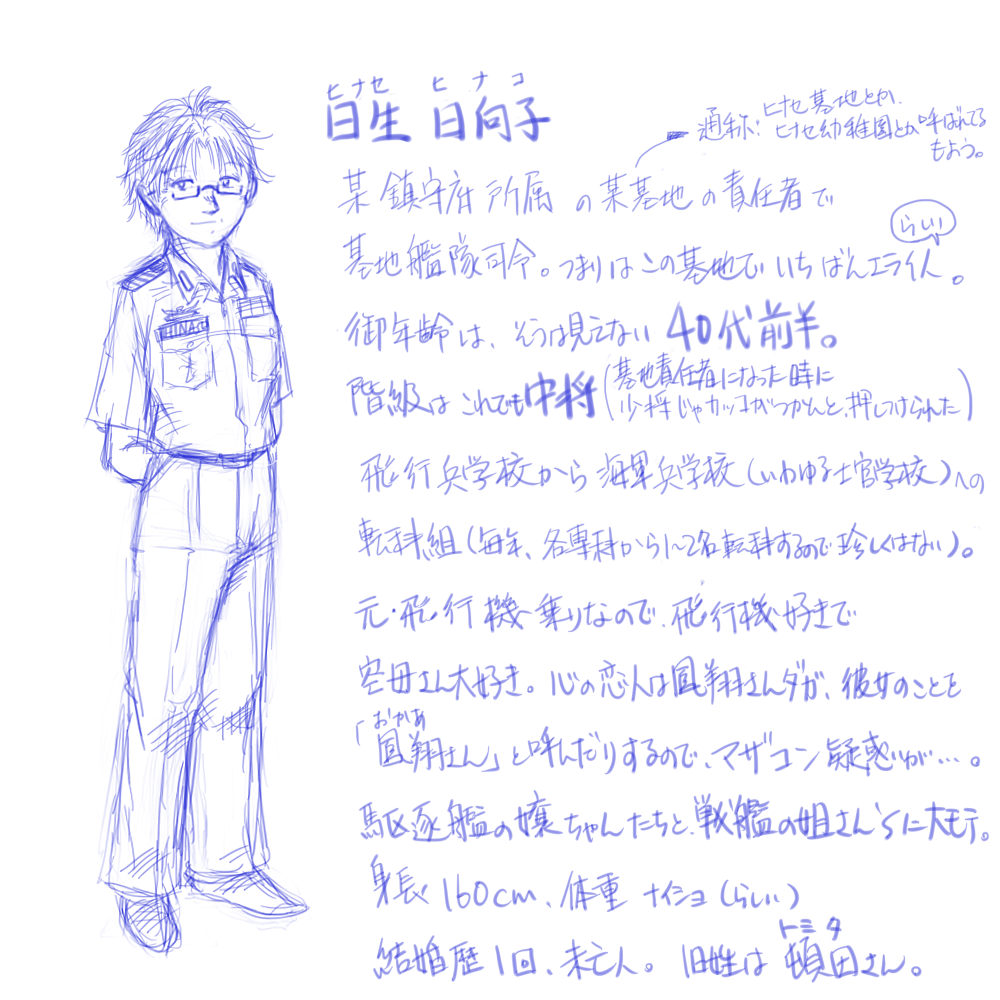 ヒナセ ヒナコ
日生 日向子
通称:ヒナセ基地とか、
ヒナセ幼稚園とか呼ばれてる
もよう。
某鎮守府所属の某基地の責任者で
らしい
基地艦隊司令。つまりはこの基地でいちばんエライ人。
御年齢は、そうは見えない40代前半。
階級はこれでも中将(基地責任者になった時に
少将じゃカッコがつかんと、押しつけられた)
飛行兵学校から海軍兵学校(いわゆる士官学校)への
転科組(毎年、各専科から1〜2名転科するので珍しくはない)。
元・飛行機乗りなので、飛行機好きで
空母さん大好き。心の恋人は鳳翔さんダガ、彼女のことを
おかあ
「鳳翔さん」と呼んだりするので、マザコン疑惑が…。
駆逐艦の嬢ちゃんたちと、戦艦の姐さん'sに大モテ。
身長160cm、体重ナイショ(らしい)
トミタ
結婚歴1回、未亡人。旧姓は頓田さん。
HINASE